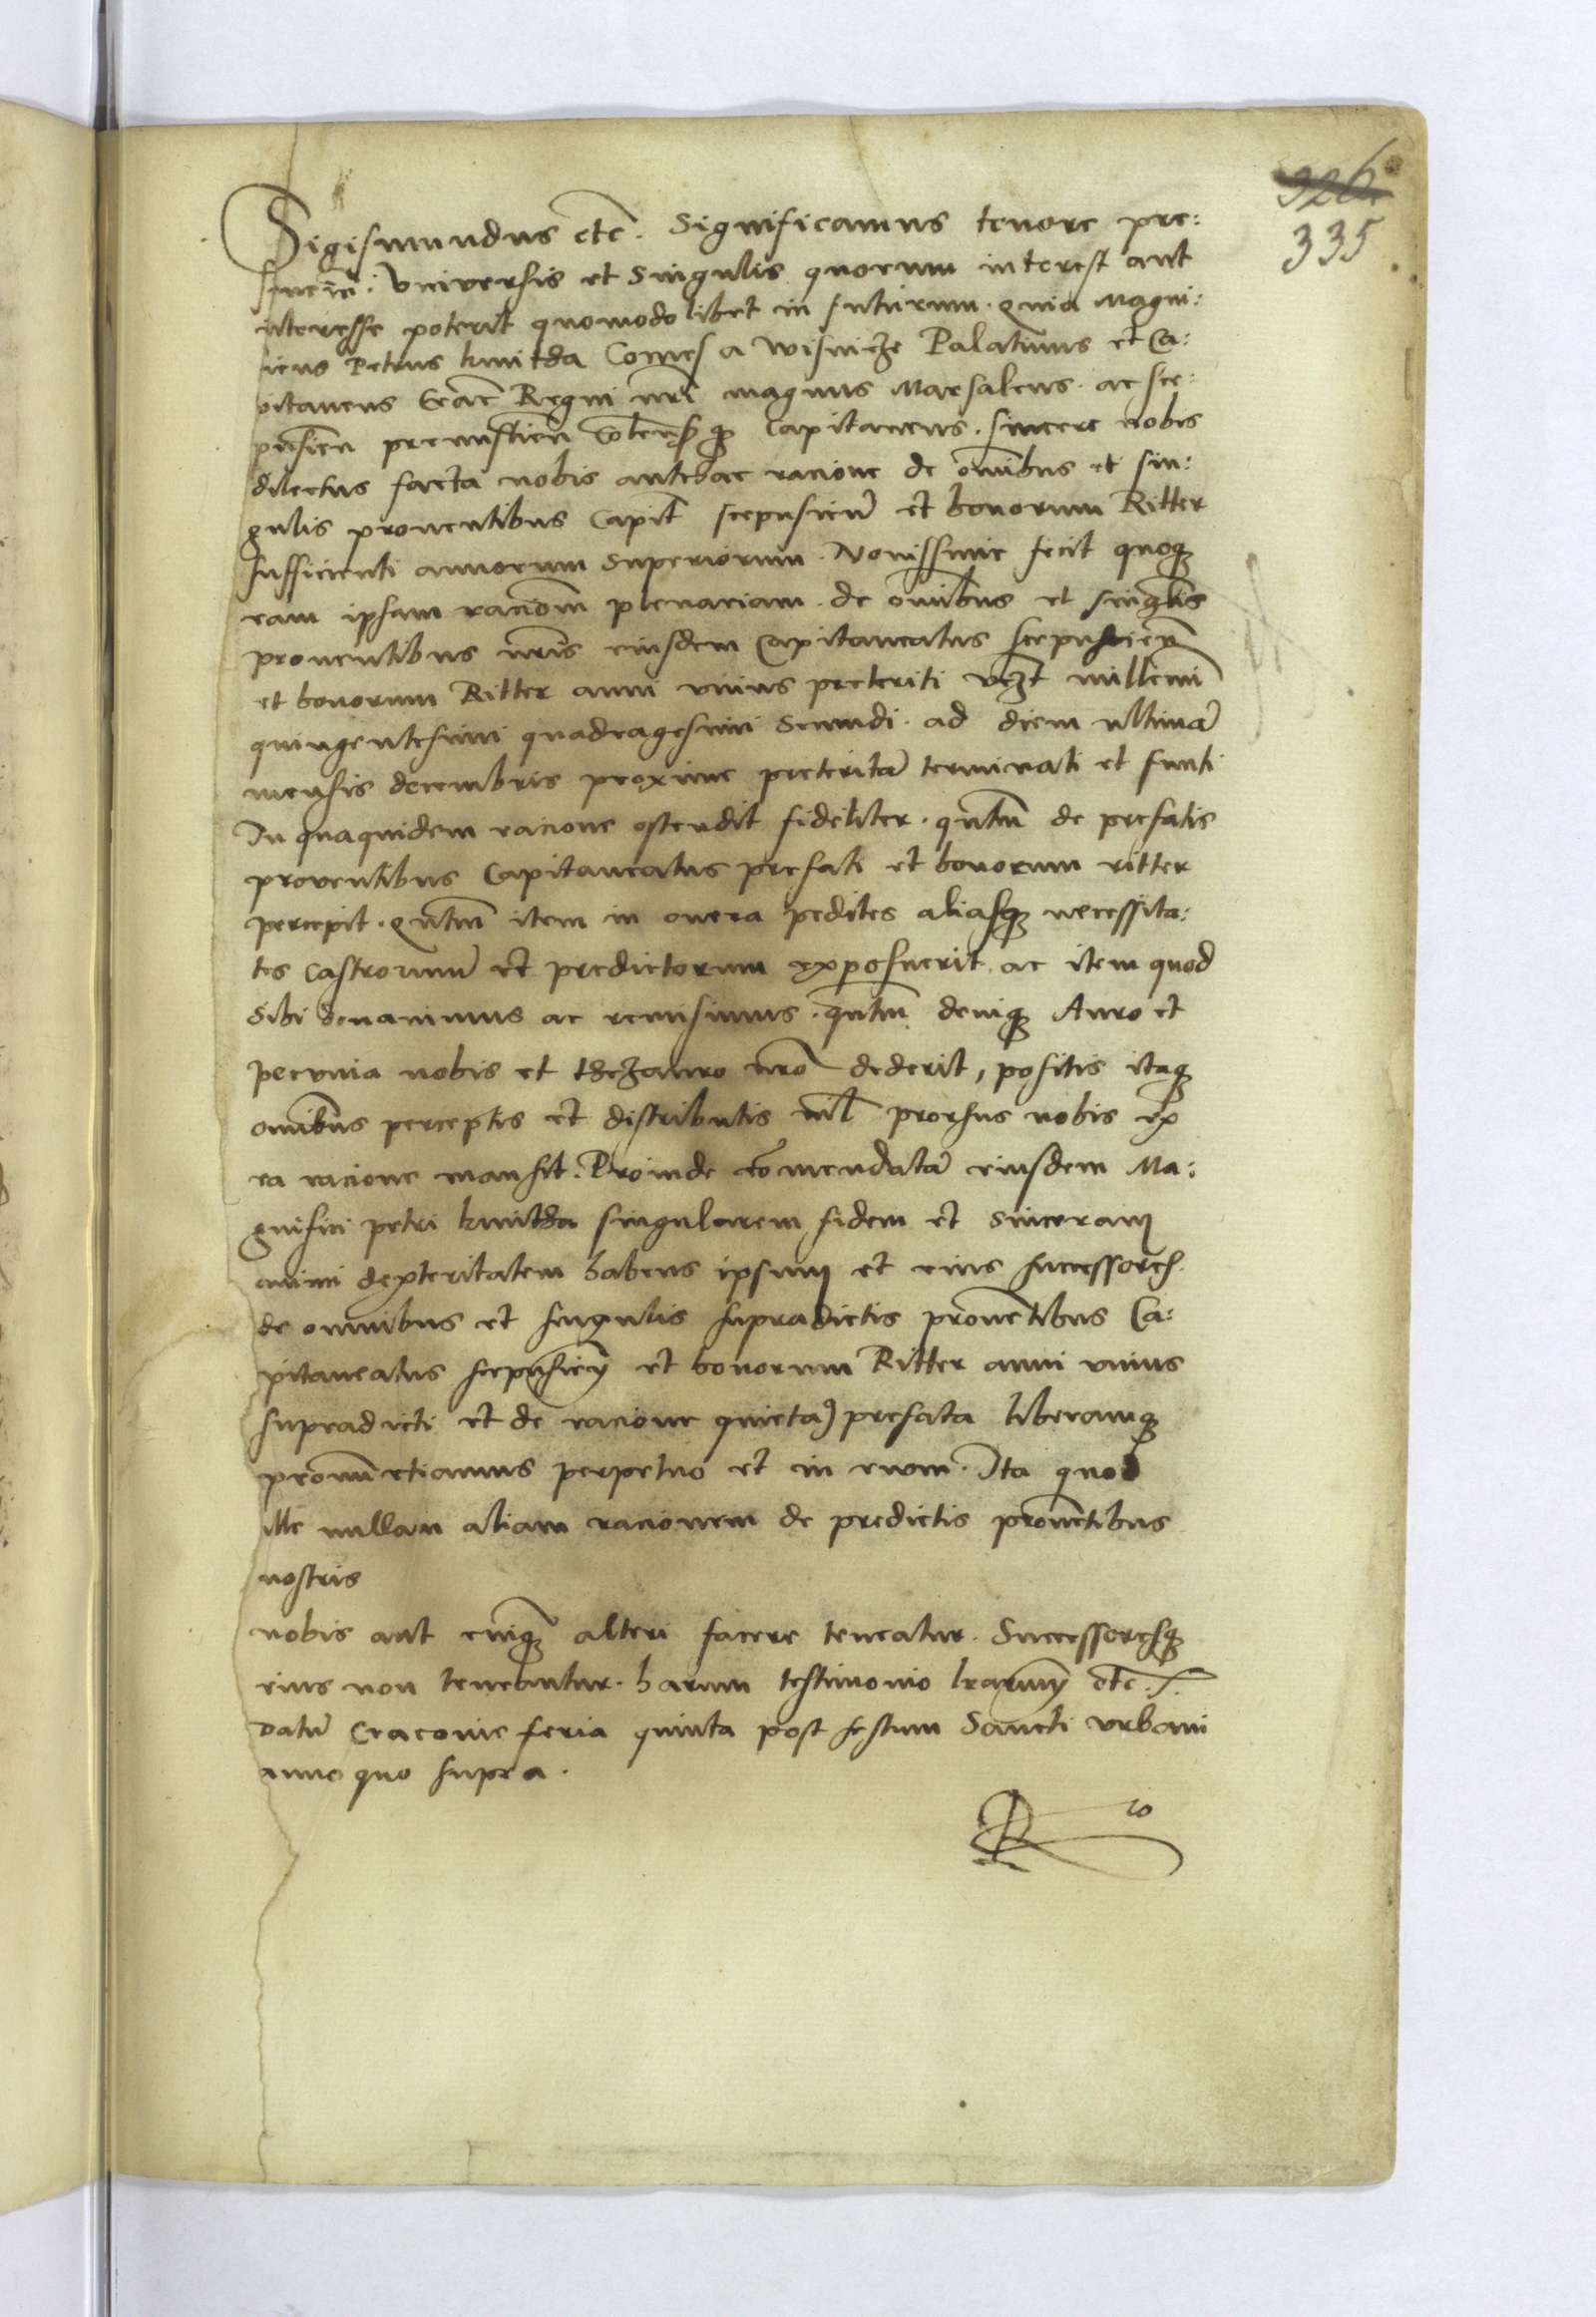 326
335
Sigismundus etc̄. Significamus tenore pre:
senciū: Universis et singulis quorum interest aut
interesse poterit quomodolibet in futurum. quia Magni:
ficus Petrus kmitha Comes a wisnicze Palatinus et Ca:
pitaneus Crac̄ Regni nr̄i magnus Marsalcus. ac sce:
pusien̄ premislien̄ Colen̄sq̨ Capitaneus. sincere nobis
dilectus facta nobis antehac racione de om̄ibus et sin:
gulis proventibus Capit̄ scepusien̄ et bonorum Ritter
sufficienti annorum superiorum. Novissime fecit quoq̨
eam ipsam racionem̄ plenariam. de om̄ibus et singulis
proventibus nr̄is eiusdem Capitaneatus scepusien̄
et bonorum Ritter anni unius preteriti vczt millemi
quingentesimi quadragesimi secundi. ad diem ultimā
mensis decembris proxime preteritā terminati et finiti
In quaquidem racione ostendit fideliter. qn̄tm̄ de prefatis
proventibus Capitaneatus prefati et bonorum ritter
percepit. qn̄tm̄ item in onera pedites aliasq̨ necessita:
tes castrorum et predictorum exposuerit, ac item quod
sibi donavimus ac remisimus. qn̄tm̄ deniq̨ Auro et
pecunia nobis et thezauro nr̄o dederit, positis itaq̨
omībus perceptis et distributis nil̄ prorsus nobis ex
ea racione mansit. Proinde com̄endatā eiusdem Ma:
gnifici petri kmitha singularem fidem et sinceram
animi dexteritatem habens ipsum et eius successores.
de omnibus et singulis supradictis proven̄tibus Ca:
pitaneatus scepusien̄ et bonorum Ritter anni unius
supradicti et de racione quieta) prefata liberamq̨
pronun̄ctiamus perpetuo et in evom. Ita quod
ille nullam aliam racionem de predictis proven̄tibus
nostris
nobis aut cuiq̨ alteri facere teneatur. Successoresq̨
eius non teneantur. harum testimonio lr̄arum etc̄.
datū Cracovie feria quinta post festum Sancti urbani
anno quo supra.